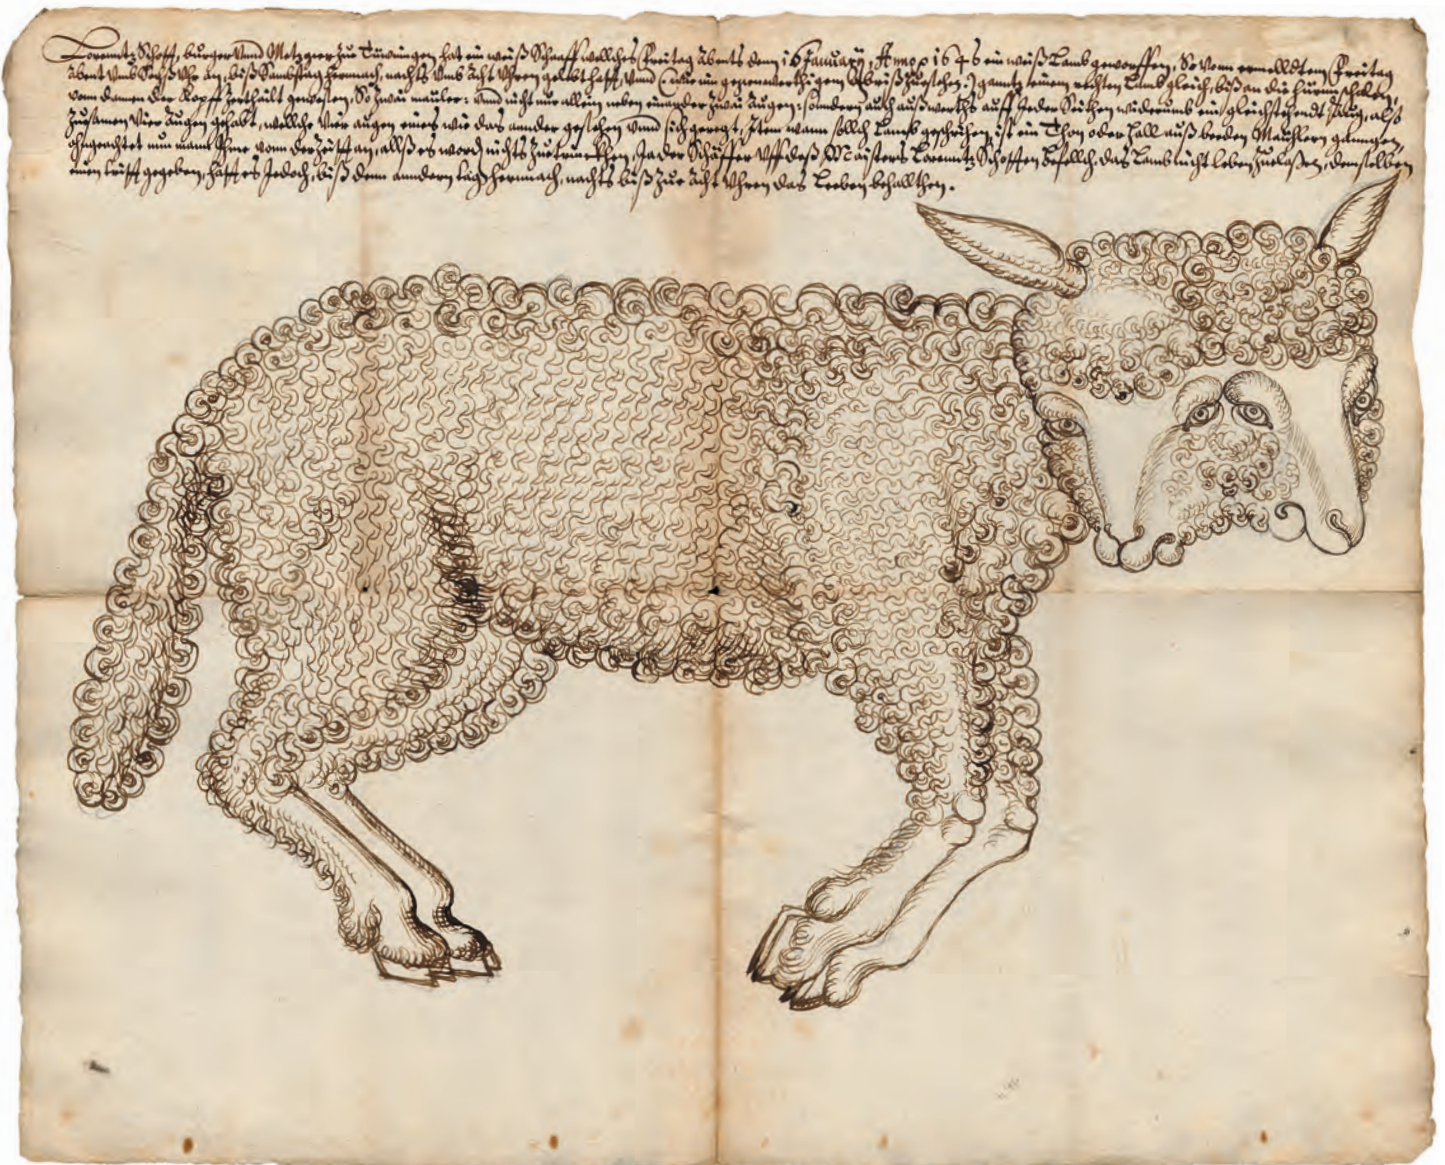 Lorenntz Schofft, burger vnnd Metzger zu Tüwingen, hat ein weiß Schaaff wellches Freitag Abents denn 16 January, Anno 1646 ein weiß Lamb geworffen, So vom ermelldtem Freitag
Abent vmb Uhr an, biß Sambstag hernnach, nachts vmb Acht Vhren gelebt hatt, vnnd (wie im gegenwerthigem Abriß zusehen) ganntz einem rechten Lamb gleich, biß an die hürnnschiden,
vonn dannen der Kopff zertheilt gewesen, So zwai mäuler: vnd nicht nur allein neben einander zwai Augen: sondern auch außwerths auff Jeder Seithen widerumb ein gleichstehendt Aug, alß
zusamen vier Augen gehabt, wellche vier augen eines wie das annder gesehen vnnd sich geregt, Item wann sollch Lamb geschrihen, ist ein Thon oder Hall auß beeden Mäuhlern ganngen,
ohngeachtet nun mann Ihme vonn der Zeitt an, allß es word nichts zu trinckhen, Ja der Schäffer vff deß Maisters Lorenntz Schofften befellch, das Lamb nicht leben zuelaßen, demselben
einen gegeben, hatt es Jedoch, biß denn anndern tag hernnach, nachts biß zur Acht Vhren das Leeben behallthen.